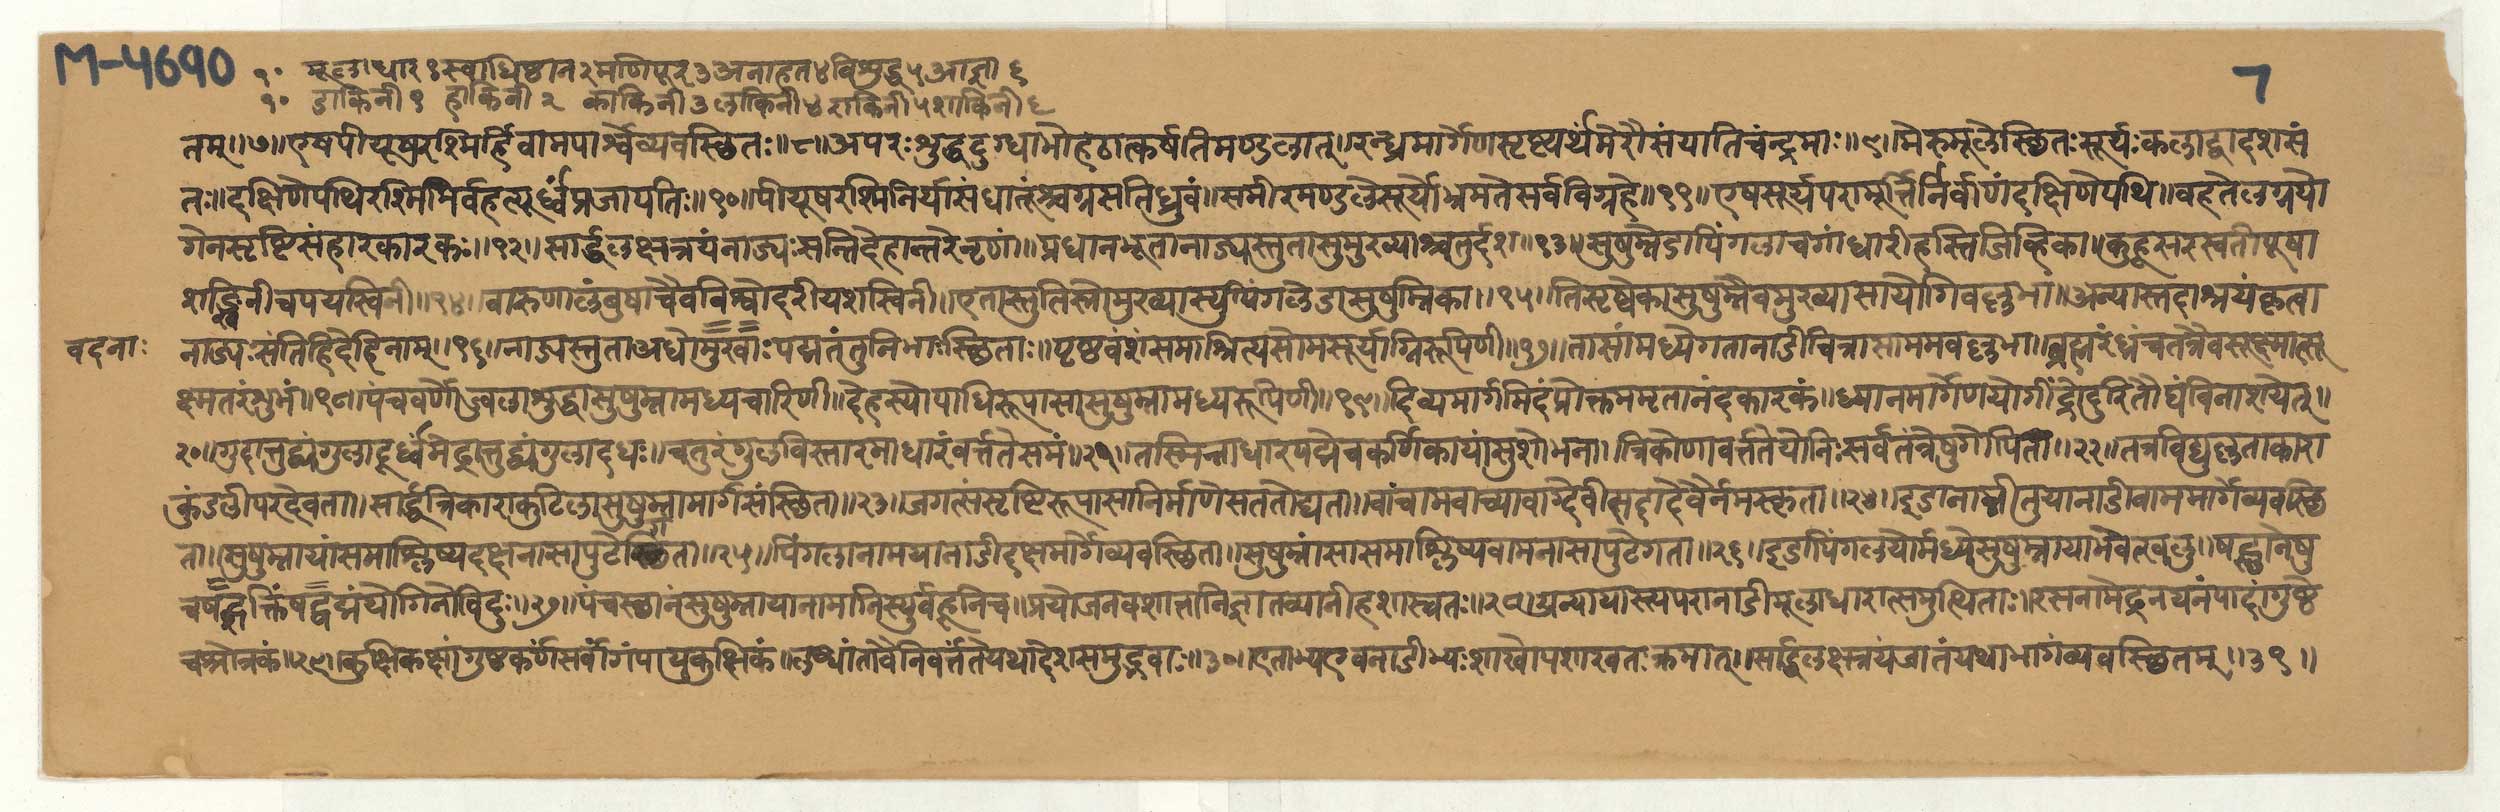 M-4690
7
१० मूलाधार १ स्वाधिष्ठान २ मणिपूर ३ अनाहत ४ विशुद्ध ५ आज्ञा ६
१० डाकिनी १ हाकिनी २ काकिनी ३ लाकिनी ४ राकिनी ५ शाकिनी ६
तम्॥७॥एषपीयूषरश्मिर्हिवामपार्श्वेव्यवस्थितः॥८॥अपरःशुद्धदुग्धाभोहठात्कर्षतिमण्डलात्॥रन्ध्रमार्गेणसृष्ट्यर्थंमेरौसंयातिचंन्द्रमाः॥९॥मेरुमूलेस्थितःसूर्यःकलाद्वादशसं
तः॥दक्षिणेपथिरश्मिभिर्वहत्यूर्ध्वंप्रजापतिः॥१०॥पीयूषरश्मिनिर्यासंधातूंश्चग्रसतिध्रुवं॥समीरमण्डलेसूर्योभ्रमतेसर्वविग्रहे॥११॥एषसूर्यपरामूर्त्तिर्निर्वाणंदक्षिणेपथि॥वहतेलग्नयो
गेनसृष्टिसंहारकारकः॥१२॥सार्द्धलक्षत्रयंनाड्यःसन्तिदेहान्तरेनृणां॥प्रधानभूतानाड्यस्तुतासुमुख्याश्चतुर्दश॥१३॥सुषुम्नेडापिंगलाचगांधारीहस्तिजिव्हिका॥कुहूसरस्वतीपूषा
शङ्खिनीचपयस्विनी॥१४॥वारुणालंबुषाचैवविश्वोदरीयशस्विनी॥एतास्तुतिस्त्रोमुख्यास्युःपिंगलेडासुषुम्निका॥१५॥तिसृष्वेकासुषुम्नैवमुख्यासायोगिवल्लभा॥अन्यास्तदाश्रयंकृत्वा
वदनाः
नाड्यःसंतिहिदेहिनाम्॥१६॥नाड्यस्तुताअधोमुखाःपद्मतंतुनिभाःस्थिताः॥पृष्ठवंशंसमाश्रित्यसोमसूर्याग्निरूपिणी॥१७॥तासांमध्येगतानाडीचित्रासाममवल्लभा॥ब्रह्मरंध्रंचतत्रैवसूक्ष्मात्सू
क्ष्मतरंशुभं॥१८॥पंचवर्णोज्वलाशुद्धासुषुम्नामध्यचारिणी॥देहस्योपाधिरूपासासुषुम्नामध्यरूपिणी॥१९॥दिव्यमार्गमिदंप्रोक्तममृतानंदकारकं॥ध्यानमार्गेणयोगींद्रोदुरितौघंविनाशयेत्॥
२०॥गुदात्तुद्व्यंगुलादूर्ध्वंमेढ्रात्तुद्व्यंगुलादधः॥चतुरंगुलविस्तारमाधारंवर्त्ततेसमं॥२१॥तस्मिन्नाधारपद्मेचकर्णिकायांसुशोभना॥त्रिकोणावर्त्ततेयोनिःसर्वतंत्रेषुगोपिता॥२२॥तत्रविद्युल्लताकारा
कुंडलीपरदेवता॥सार्द्धत्रिकाराकुटिलासुषुम्नामार्गसंस्थिता॥२३॥जगत्संसृष्टिरूपासानिर्माणेसततोद्यता॥वाचामवाच्यावाग्देवीसदादेवैर्नमस्कृता॥२४॥इडानाम्नीतुयानाडीवाममार्गेव्यवस्थि
ता॥सुषुम्नायांसमाश्लिष्यदक्षनासापुटेगता॥२५॥पिंगलानामयानाडीदक्षमार्गेव्यवस्थिता॥सुषुम्नांसासमाश्लिष्यवामनासापुटेगता॥२६॥इडापिंगलयोर्मध्येसुषुम्नायाभवेत्खलु॥षट्स्थानेषु
चषट्शक्तिंषट्पद्मंयोगिनोविदुः॥२७॥पंचस्थानंसुषुम्नायानामानिस्युर्बहूनिच॥प्रयोजनवशात्तानिज्ञातव्यानीहशास्त्रतः॥२८॥अन्यायास्त्यपरानाडीमूलाधारात्समुत्थिताः॥रसनामेढ्रनयनंपादांगुष्ठे
चश्रोत्रकं॥२९॥कुक्षिकक्षांगुष्ठकर्णसर्वांगंपायुकुक्षिकं॥लब्ध्वांतावैनिवर्त्ततेयथादेशसमुद्भवाः॥३०॥एताभ्यएवनाडीभ्यःशाखोपशाखतःक्रमात्॥सार्द्धलक्षत्रयंजातंयथाभागंव्यवस्थितम्॥३१॥